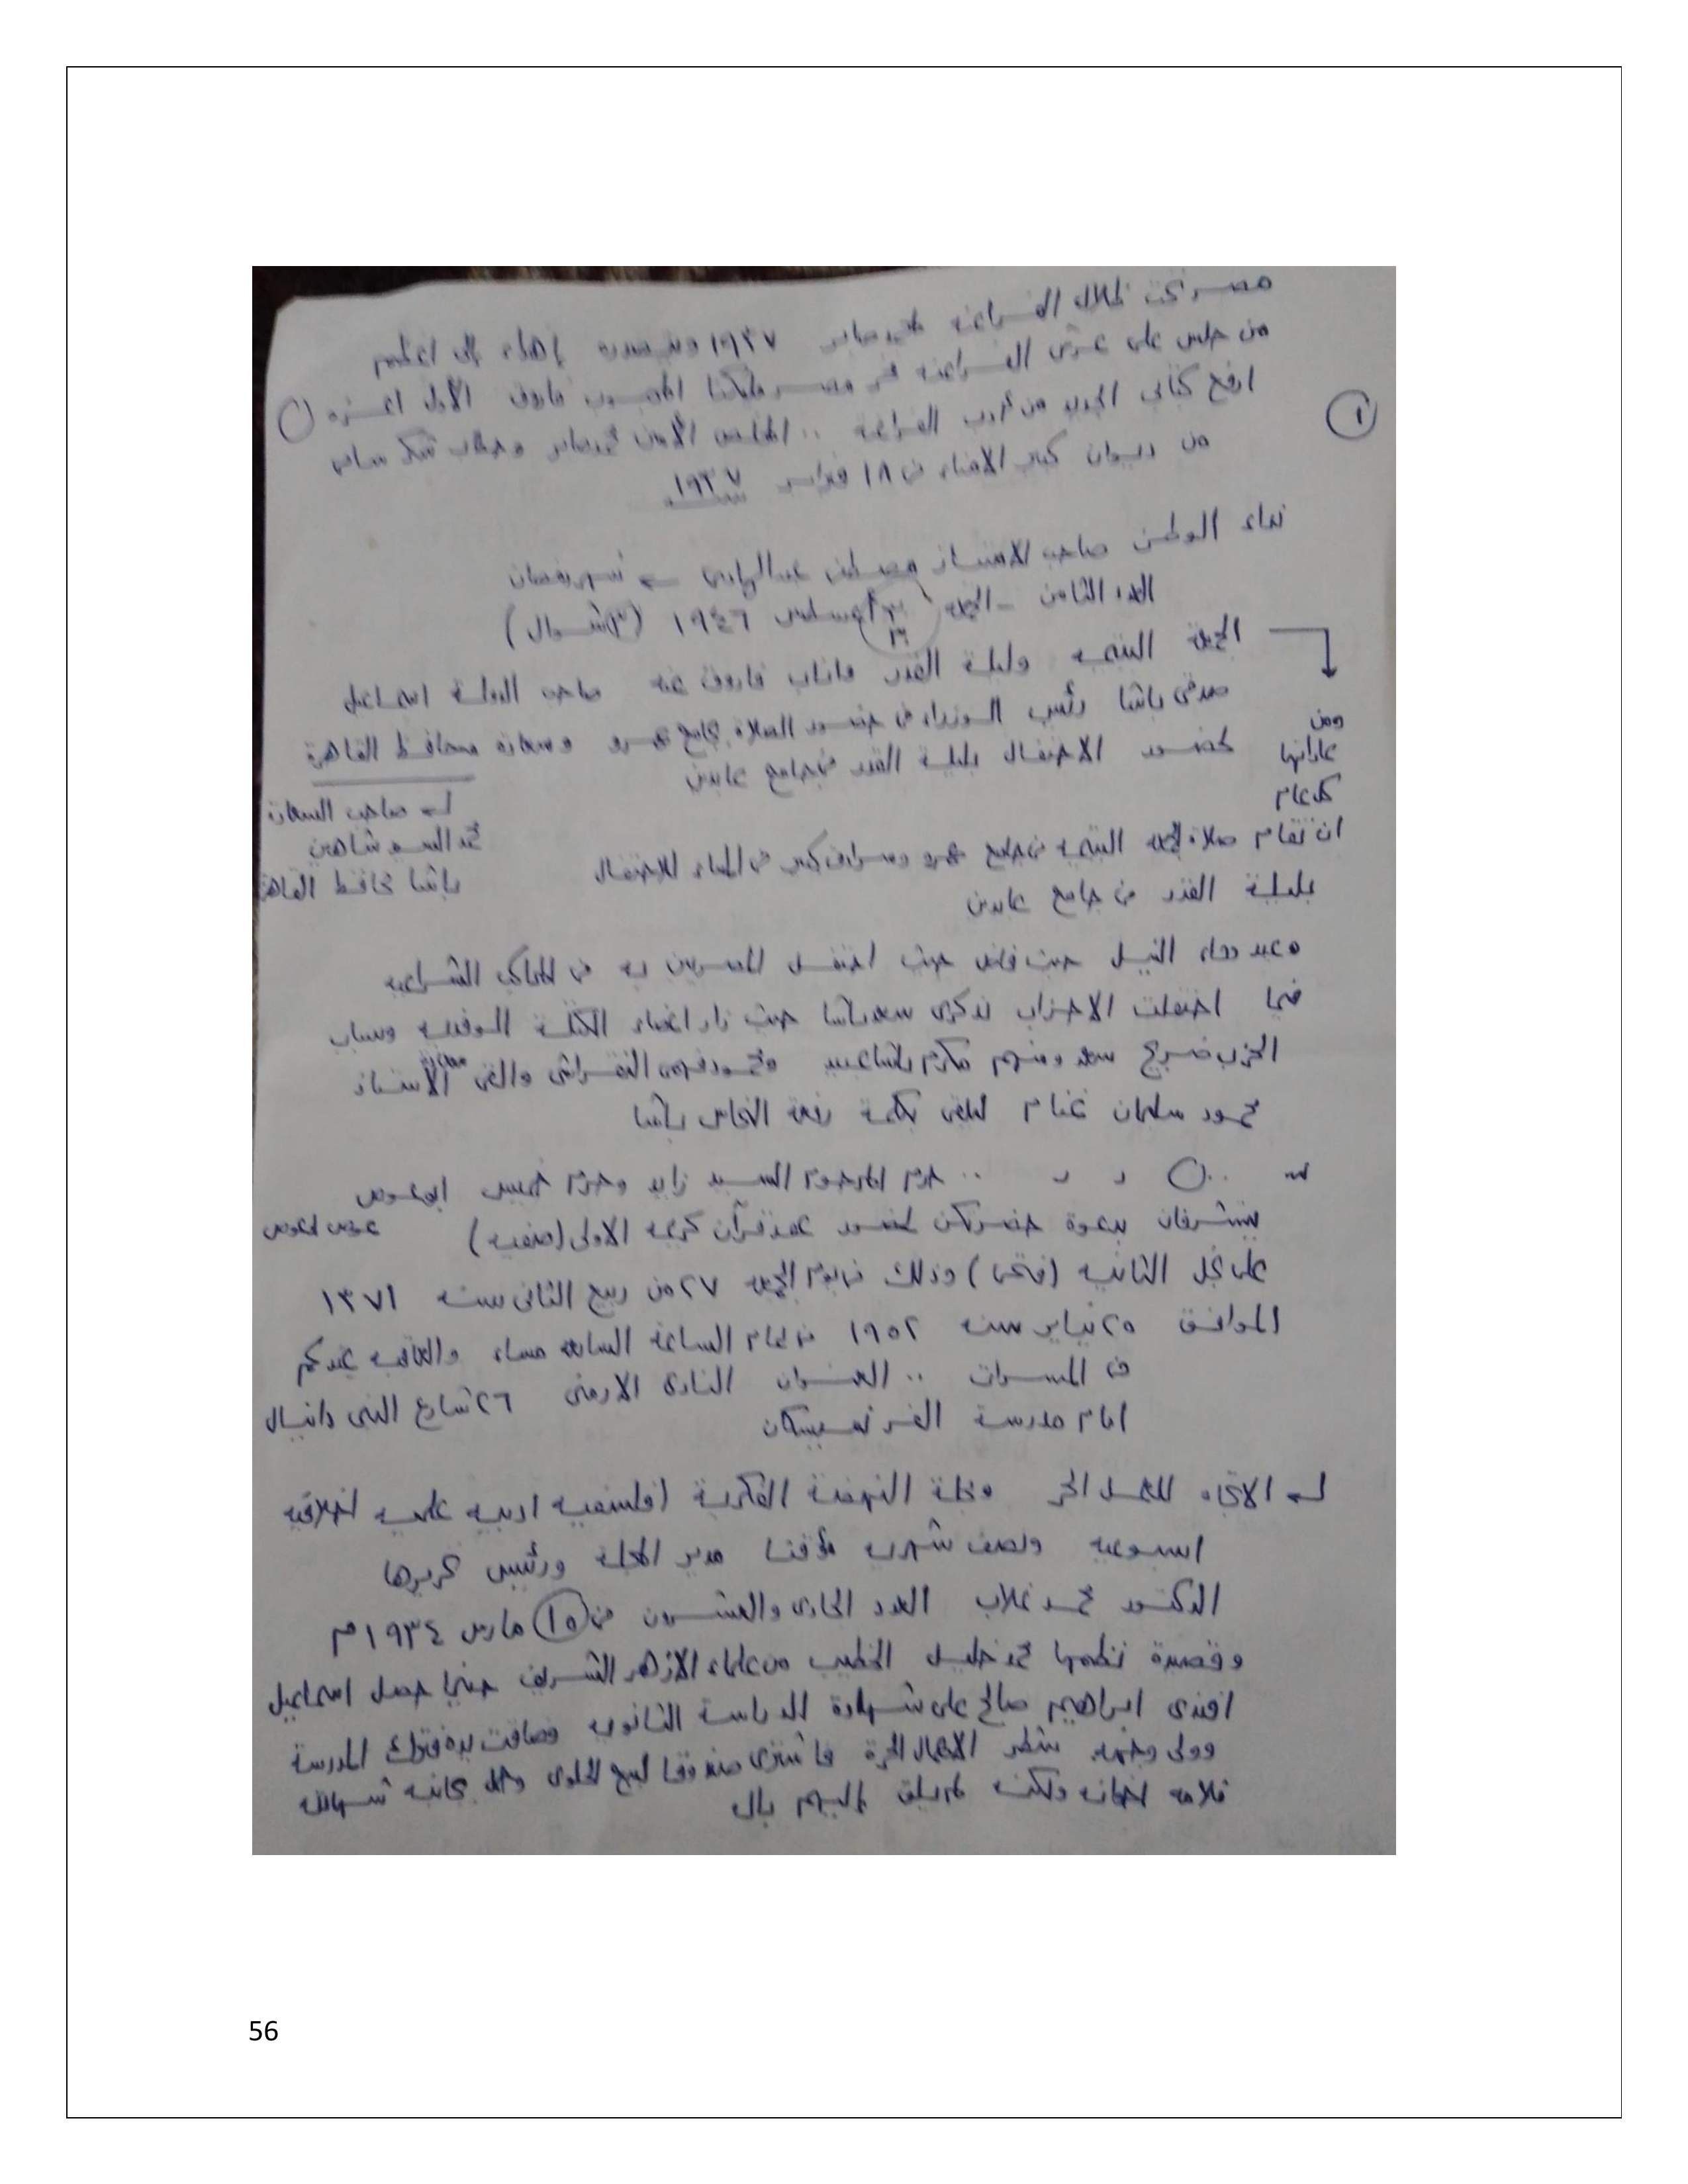 مصر تحت ظلال الفراعنة محمد صابر ١٩٣٧ إهداء إلى اعظم
من جلس على عرش الفراعنة فى مصر مليكنا المحبوب فاروق الأول اعزه ()
١
ارفع كتابى الجديد من أدب الفراعنة .. المخلص الأمين محمد صابر وخطاب شكر سامى
من ديوان كبير الامناء فى ١٨ فبراير ١٩٣٧
نداء الوطن صاحب الامتياز مصطفى عبدالهادى شهر رمضان
العدد الثامن - الجمعة ٣٠ أغسطس ١٩٤٦ (٣ شوال)
الجمعة اليتيمة وليلة القدر واناب فاروق عنه صاحب الدولة اسماعيل
صدقى باشا رئيس الوزراء فى حضور الصلاة بجامع عمرو وسعادة محافظ القاهرة
لحضور الاحتفال بليلة القدر فى جامع عابدين
صاحب السعادة
محمد السيد شاهين
باشا محافظ القاهرة
ومن
عاداتها
كل عام
ان تقام صلاة الجمعة اليتيمة فى جامع عمرو وسرادق كبير فى المساء للاحتفال
بليلة القدر فى جامع عابدين
وعيد وفاء النيل حيث فاض حيث احتفل المصريين به فى المحاكم الشراعية
فيما احتفلت الاحزاب بذكرى سعد باشا حيث زار اعضاء الكتلة الوفدية وشباب
الحزب ضريح سعد ومنهم مكرم باشا عبيد ومحمود فهمى النقراشى والقى الأستاذ
محمود سليمان غنام ليلقى بكلمة رفعة النحاس باشا
.. حرم المرحوم السيد زايد وحرم خميس ابوعوض
يتشرفان بدعوة حضرتكن لحضور عقد قرآن كريمة الاولى (صفية)
على نجل الثانية (فتحى) وذلك فى يوم الجمعة ٢٧ من ربيع الثانى سنة ١٣٧١
الموافق ٢٥ يناير سنة ١٩٥٢ فى تمام الساعة السابعة مساء والعاقبة عندكم
فى المسرات .. العنوان النادى الارمنى ٢٦ شارع النبى دانيال
امام مدرسة الفرنسيسكان
الاتجاه للعمل الحر ومجلة النهضة الفكرية (فلسفية ادبية علمية اخلاقية
اسبوعية ونصف شهرية مؤقتا مدير المجلة ورئيس تحريرها
الدكتور محمد غلاب العدد الحادى والعشرون فى ١٥ مارس ١٩٣٤م
وقصيدة نظمها محمد خليل الخطيب من علماء الازهر الشريف حينما حصل اسماعيل
افندى ابراهيم صالح على شهادة الدراسة الثانوية فضاقت يده فترك المدرسة
وولى وجهه شطر الاعمال الحرة فاشترى صندوقا لبيع الحلوى بجانبه شهادته
فلامه اخوانه ولكنه لم يلق اليهم بال
56